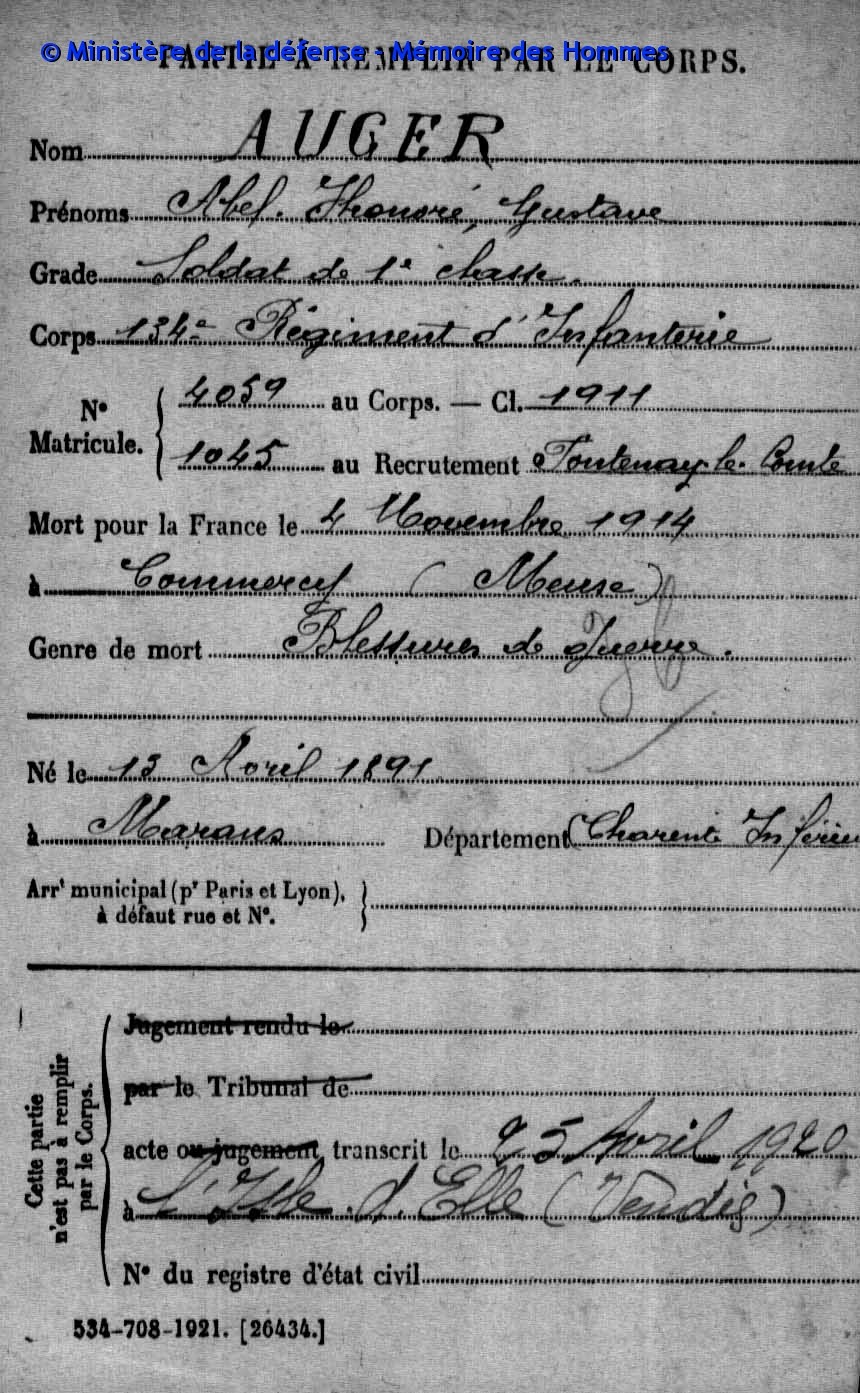 © Ministère de la défense - Mémoire des Hommes
PARTIE À REMPLIR PAR LE CORPS.
Nom AUGER
Prénoms Abel, Honoré, Gustave
Grade Soldat de 1e classe.
Corps 134e Régiment d'Infanterie
N° Matricule. 4059 au Corps. — Cl. 1911
1045 au Recrutement Fontenay-le-Comte
Mort pour la France le 4 Novembre 1914
à Commercy (Meuse)
Genre de mort Blessures de guerre.
Né le 13 Avril 1891
à Marans Département Charente Inférieu
Arrt municipal (pr Paris et Lyon),
à défaut rue et N°.
Cette partie n'est pas à remplir par le Corps.
Jugement rendu le
par le Tribunal de
acte ou jugement transcrit le 25 Avril 1920
à L'Isle d'Elle (Vendée)
N° du registre d'état civil
534-708-1921. [26434.]